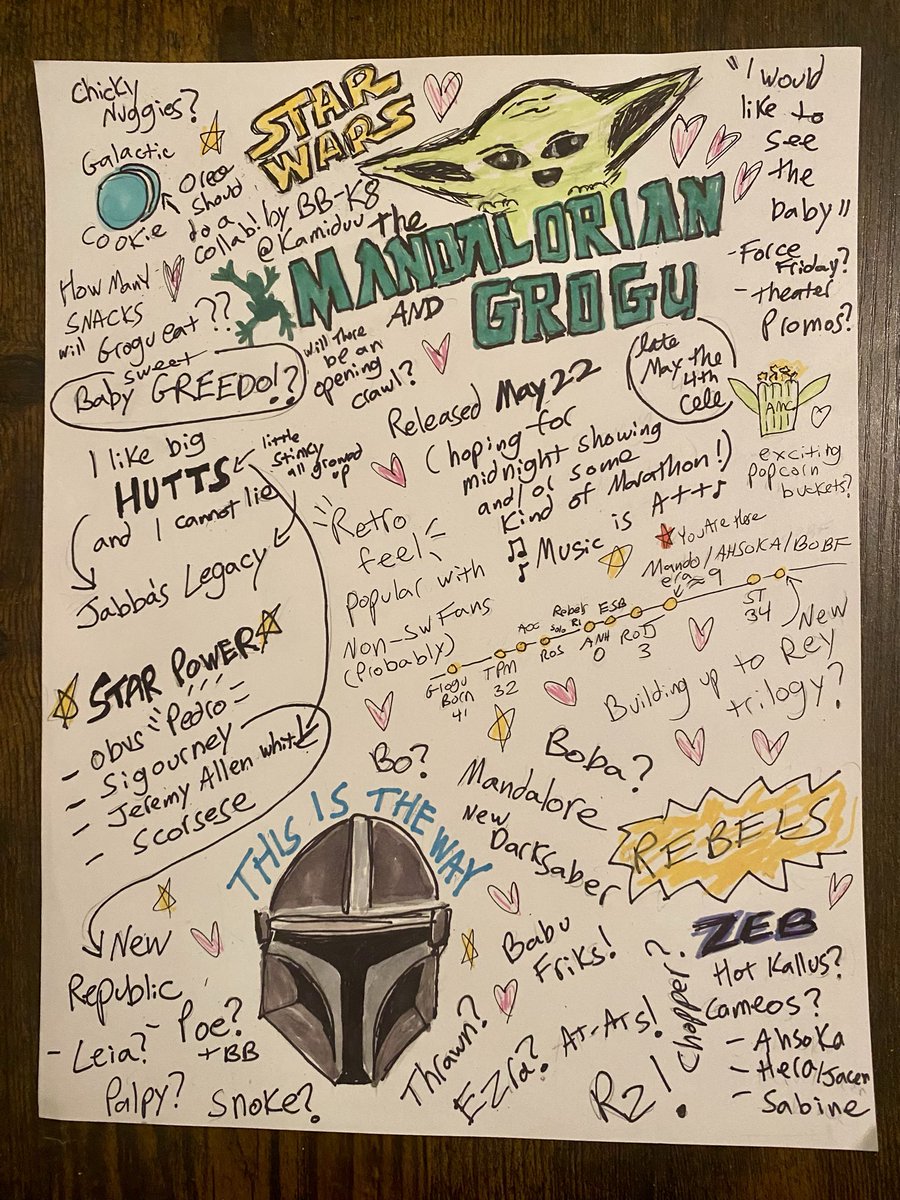 Chicky
Nuggies?
STAR
WARS
"I would
like to
see
the
baby"
Galactic
Cookie
Oreo
should
do a
collab!
by BB-K8
@Kamiduu
the
MANDALORIAN
AND GROGU
- Force
Friday?
- Theater
Promos?
How Many
SNACKS
will Grogu eat??
sweet
Baby GREEDO!?
will there
be an
opening
crawl?
Released May 22
(hoping for
midnight showing
and/or some
kind of Marathon!)
late
May the
4th
Cele
AMC
exciting
popcorn
buckets?
I like big
HUTTS
and I cannot lie
little
stinky
all growed
up
Jabba's Legacy
Retro
feel
popular with
Non-SW Fans
(Probably)
Music is A++
You Are Here
Mando/AHSOKA/BOBF
era ≈ 9
Grogu
Born
41
TPM
32
AOC
ROS
Solo
Rebels
R1
ANH
0
ESB
ROTJ
3
ST
34
New
Building up to Rey
trilogy?
STAR POWER
- obvs "Pedro"
- Sigourney
- Jeremy Allen White
- Scorsese
Bo?
Boba?
Mandalore
New
Darksaber
THIS IS THE WAY
REBELS
ZEB
Hot Kallus?
Cameos?
- Ahsoka
- Hera/Jacen
- Sabine
Babu
Friks!
New
Republic
- Leia?
- Poe?
+ BB
Palpy?
Snoke?
Thrawn?
Ezra?
AT-ATs!
R2!
Chopper?